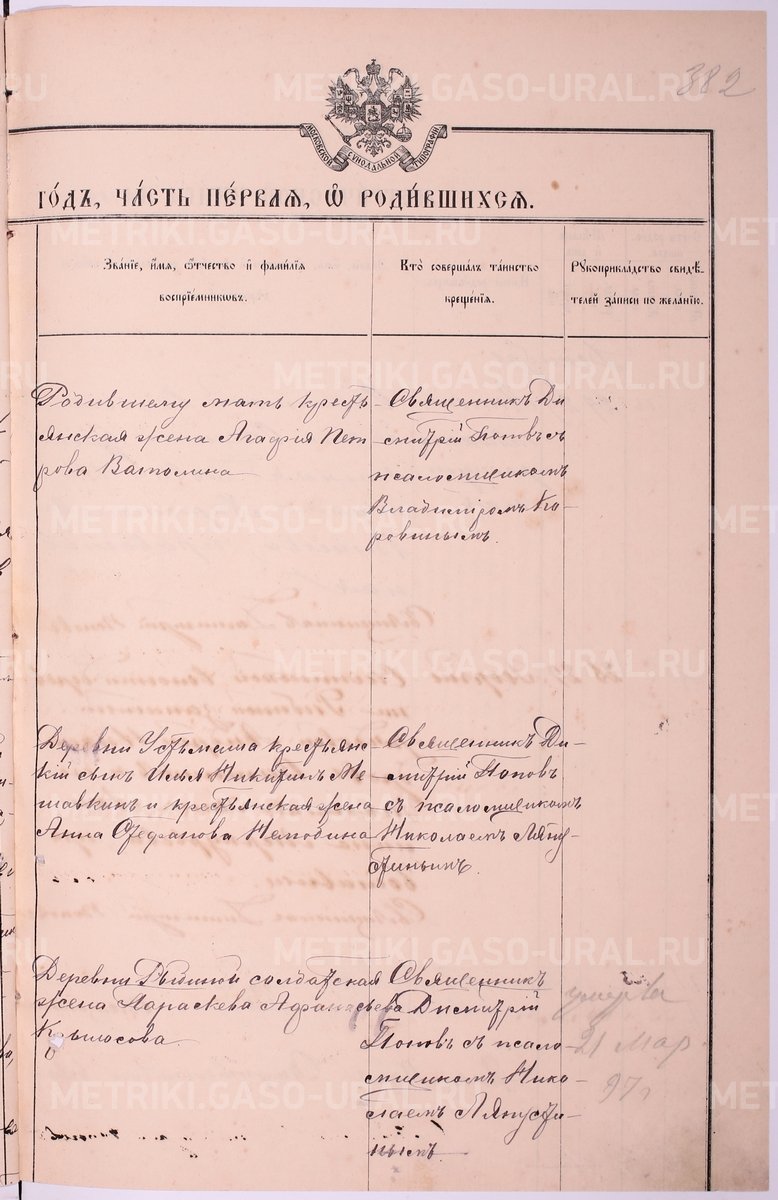 382
МОСКОВСКОЙ СѴНОДАЛЬНОЙ ТИПОГРАФІИ
ГО́ДЪ, ЧА́СТЬ ПЕ́РВАЯ, Ѽ РОДИ́ВШИХСЯ.
Зва́нїе, и́мя, ѻ҆́тчество и҆ фами́лїя
воспрїе́мниковъ.
Кто̀ соверша́лъ та́инство
креще́нїя.
Рꙋкоприкла́дство свидѣ́-
телей за́писи по жела́нїю.
Родившему мать кресть
янская жена Агафія Пет
рова Ватолина
Священникъ Ди
митрій Поповъ съ
псаломщикомъ
Владиміромъ Ко-
ровинымъ.
Деревни Устьмаша крестьянс
кій сынъ Илья Никитинъ Ме
шавкинъ и крестьянская жена
Анна Стефанова
Священникъ Ди-
митрій Поповъ
съ псаломщикомъ
Николаемъ Ляпу-
стинымъ.
Деревни солдатская
жена Параскева Афанасьева
Крылосова.
Священникъ
Димитрій
Поповъ съ псало-
мщикомъ Нико-
лаемъ Ляпусти-
нымъ
21 Мар
97г
METRIKI.GASO-URAL.RU